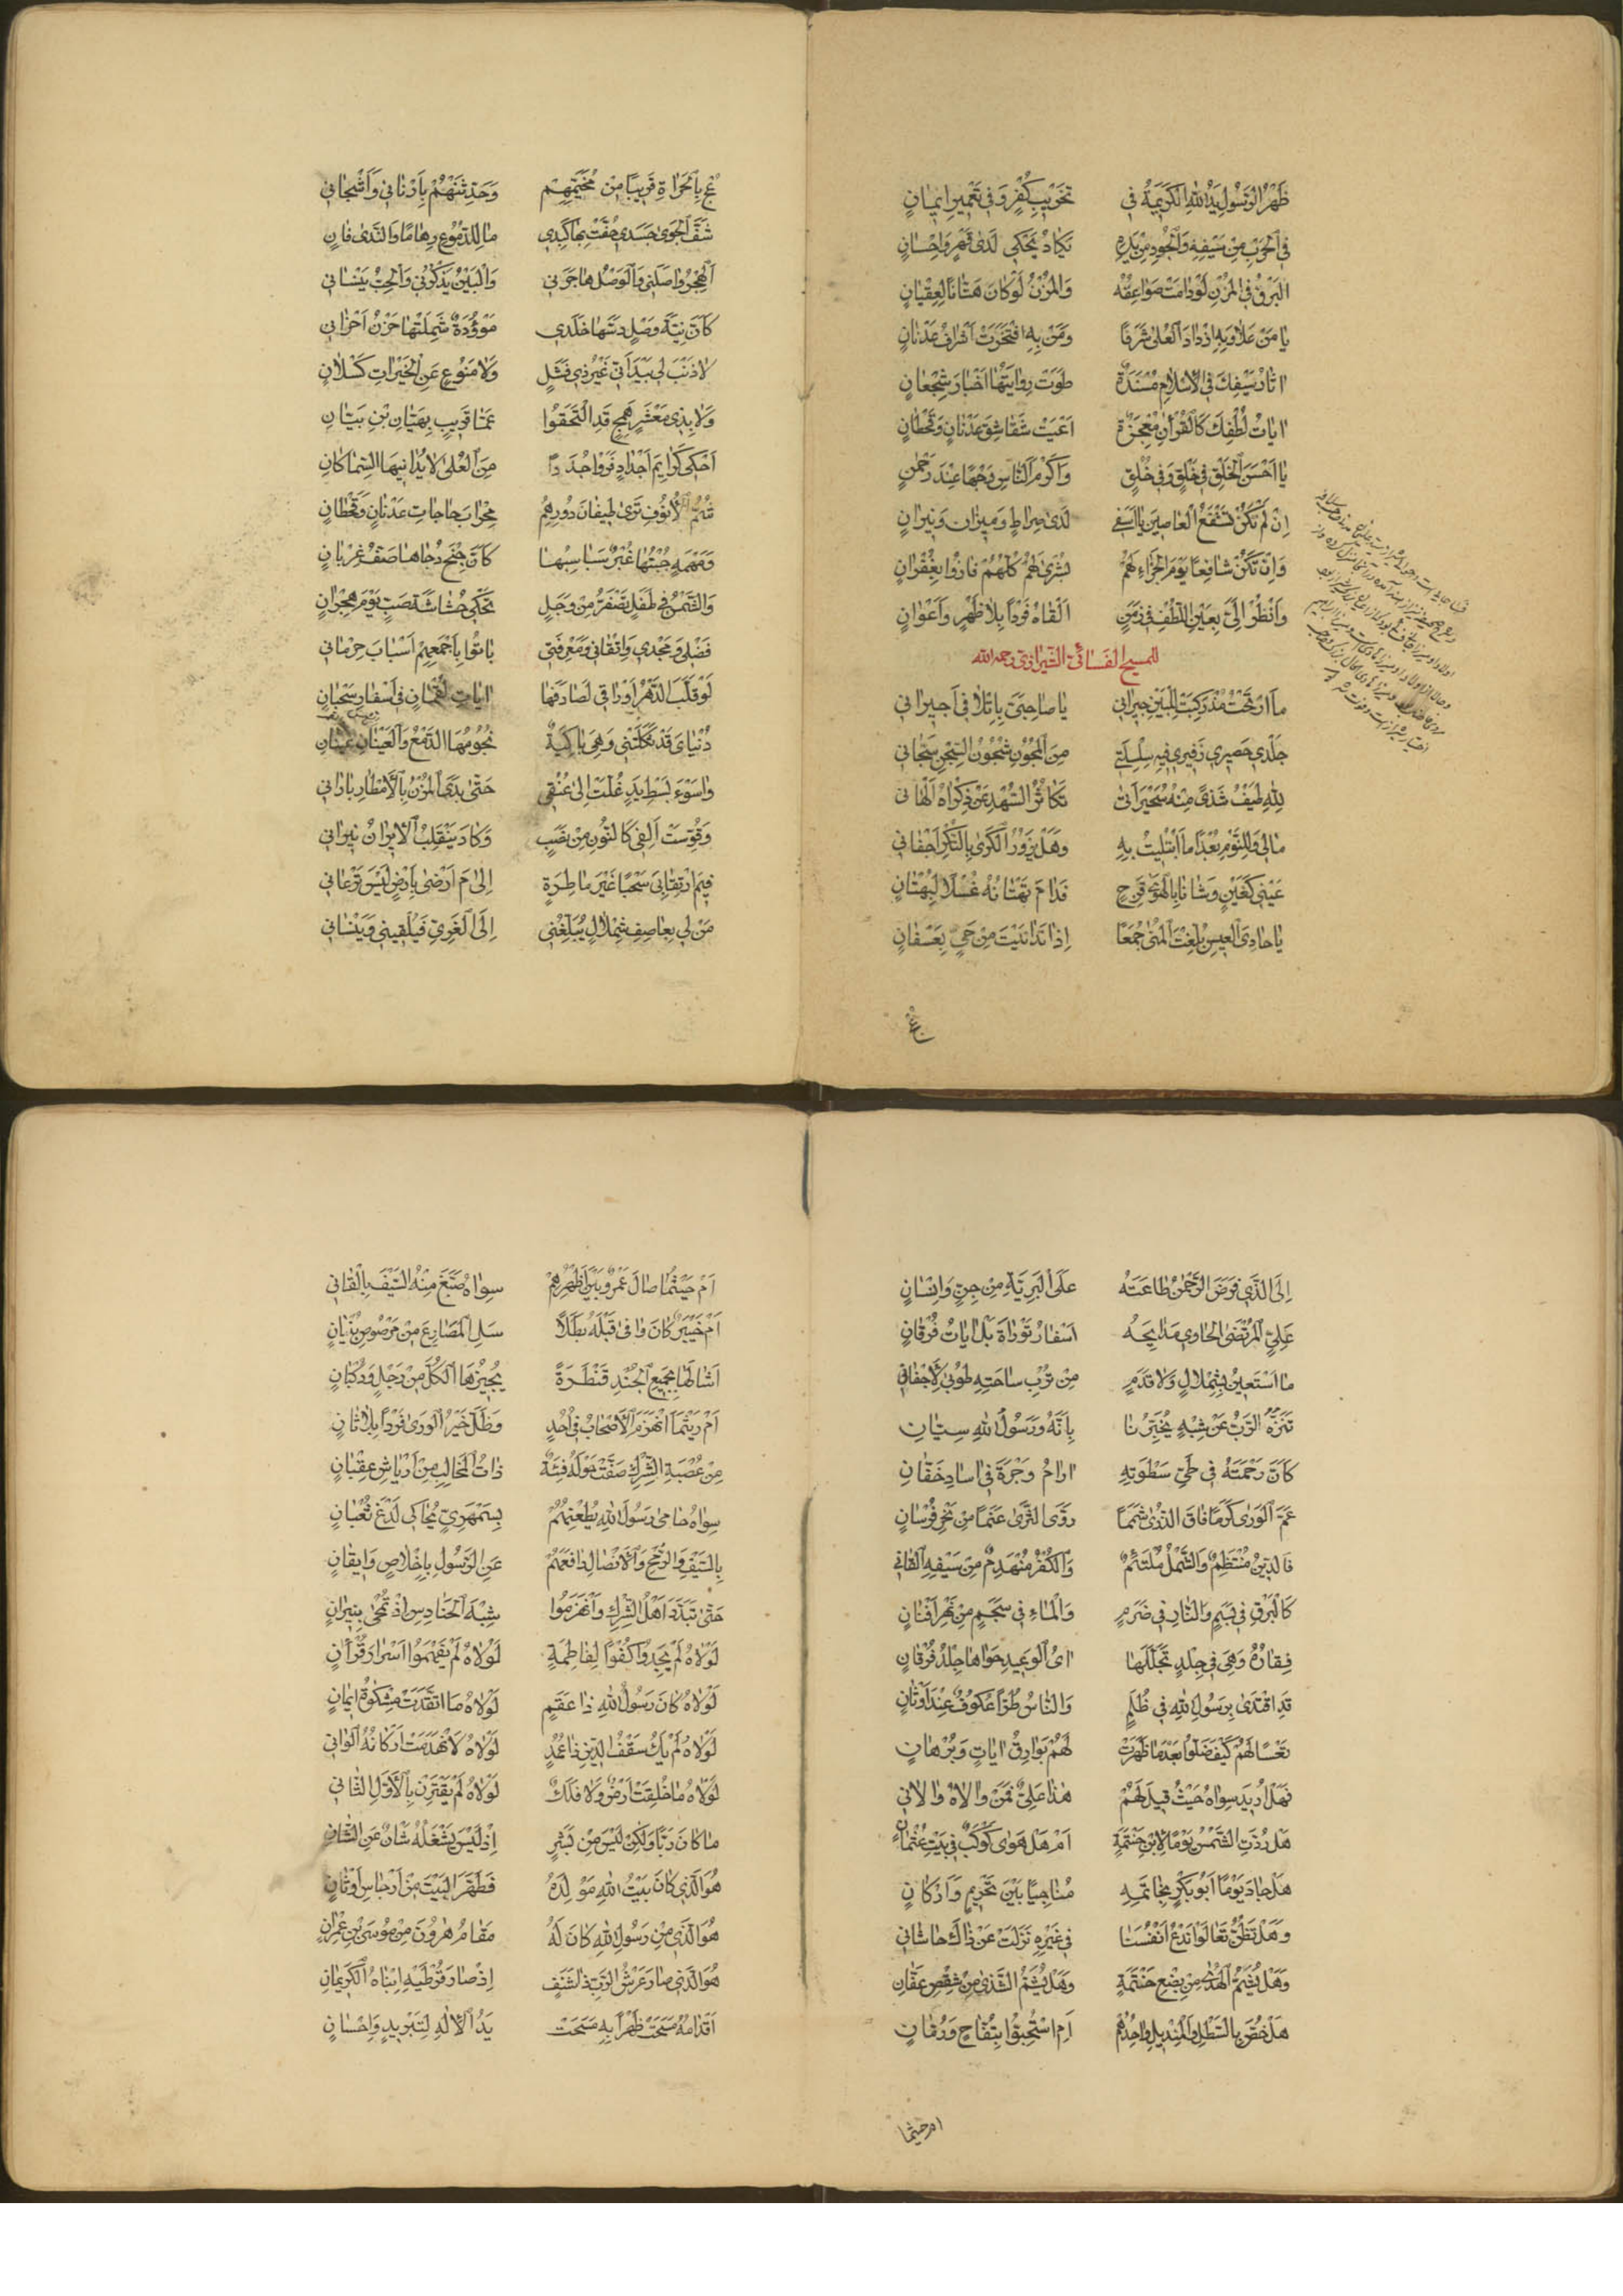 ظَهْرُ الرَّسُولِ يَدُ اللهِ الْكَرِيمَةُ في تَخْرِيبِ كُفْرٍ وَفي تَعْمِيرِ ايمانٍ
في الْحَرْبِ مِنْ سَيْفِهِ وَالْجُودِ مِنْ يَدِهِ تَكَادُ تَحْكي لَدى قَهْرٍ وَاِحْسانٍ
الْبَرْقُ في الْمُزْنِ لَوْ دامَتْ صَواعِقُهُ وَالْمُزْنُ لَوْ كانَ هَتّانًا لِعِقْيانٍ
يا مَنْ عَلا وَبِهِ ازْدادَ الْعُلى شَرَفًا وَمَنْ بِهِ افْتَخَرَتْ اَشْرافُ عَدْنانٍ
اثارُ سَيْفِكَ في الْاِسْلامِ مُسْنَدَةٌ طَوَتْ رِوايَتُها اَخْبارَ شُجْعانٍ
اياتُ لُطْفِكَ كَالْقُرْانِ مُعْجِزَةٌ اَعْيَتْ شَقاشِقَ عَدْنانٍ وَقَحْطانٍ
يا اَحْسَنَ الْخَلْقِ في خَلْقٍ وَفي خُلُقٍ وَاَكْرَمَ النّاسِ وَجْهًا عِنْدَ رَحْمنٍ
اِنْ لَمْ تَكُنْ تَشْفَعُ الْعاصينَ يا اَسَفي لَدى صِراطٍ وَميزانٍ وَنيرانٍ
وَاِنْ تَكُنْ شافِعًا يَوْمَ الْجَزاءِ لَهُمْ بُشْرى لَهُمْ كُلُّهُمْ فازُوا بِغُفْرانٍ
وَانْظُرْ اِلَيَّ بِعَيْنِ اللُّطْفِ في زَمَنٍ اَلْقاهُ فَرْدًا بِلا ظَهْرٍ وَاَعْوانٍ
للمسيح الفسائي الشيرازي رحمه الله
ما ارْتَحْتُ مُذْ رَكِبَتْ لِلْبَيْنِ جيراني يا صاحِبَيَّ بِاِتْلافي اَجيراني
جَلَدي حَصيري زَفيري فيهِ سِلْسِلَتي مِنَ الْجُونِ شُجُونُ السِّجْنِ سَجّاني
لِلّهِ طَيْفُ شَذًى مِنْهُ سُحَيْرًا اَتى تَكاثُرُ السُّهْدِ عَنْ ذِكْراهُ اَلْهاني
مالي وَلِلنَّوْمِ بُعْدًا ما ابْتُليتُ بِهِ وَهَلْ يَزُورُ الْكَرى بِالنُّكْرِ اَجْفاني
عَيْني كَعَيْنٍ وَشَانا بِالْهَوى قَرِحٍ قَدامَ تَهْتانُهُ غُسْلًا لِبُهْتانٍ
يا حادِيَ الْعيسِ بُلِّغْتَ الْمُنى جُمَعًا اِذا تَدانَيْتَ مِنْ حَيٍّ بِعَسْفانٍ
عُجْ
عُجْ بِالْحَرّاةِ قَريبًا مِنْ مُخَيَّمِهِمْ وَحَدِّثَنْهُمْ بِاَدْناني وَاَشْجاني
شَفَّ الْجَوى جَسَدي حُفَّتْ بِها كَبِدي ما لِلدُّمُوعِ رِهامًا وَالنَّدى فانٍ
اَلْهَجْرُ واصَلَني وَالْوَصْلُ هاجَرَني وَالْبَيْنُ يَذْكُرُني وَالْحِبُّ يَنْساني
كَاَنَّ نِيَّةَ وَصْلٍ دَسَّها خَلَدي مَوْؤُدَةٌ شَمِلَتْها حَزْنُ اَحْزاني
لا ذَنْبَ لي بَيْدَ اَنّي غَيْرُ ذي فَشَلٍ وَلا مَنُوعٍ عَنِ الْخَيْراتِ كَسْلانٍ
وَلا بِذي مَعْشَرٍ هَمَجٍ قَدِ الْتَحَقُوا عَمّا قَريبٍ بِهَيّانِ بْنِ بَيّانِ
اَحْكي كَرايمَ اَجْدادٍ فَرَوْا جُدَدًا مِنَ الْعُلى لا يُدانيهَا السِّماكانِ
شُمُّ الْاُنُوفِ تَرى لِضيفانَ دُورِهِمُ مِحْرابَ حاجاتِ عَدْنانٍ وَقَحْطانٍ
وَمَهْمَهٍ جُبْتُها غُبْرٌ سَباسِبُها كَاَنَّ جِنْحَ دُجاها صَفُّ غِرْبانٍ
وَالشَّمْسُ في طَفَلٍ تَصْفَرُّ مِنْ وَجَلٍ تَحْكي حُشاشَةَ صَبٍّ يَوْمَ هِجْرانٍ
فَضْلي وَمَجْدي وَاِتْقاني وَمَعْرِفَتي باتُوا بِاَجْمَعِهِمْ اَسْبابَ حِرْماني
لَوْ قَلَّبَ الدَّهْرُ اَوْراقي لَصادَفَها اياتِ لُقْمانٍ في اَسْفارِ سَحْبانٍ
دُنْيايَ قَدْ ثَكِلَتْني وَهِيَ باكِيَةٌ نُجُومُهَا الدَّمْعُ وَالْعَيْنانِ عَيْنانِ
واسَوْءَ بَسْطِ يَدٍ غُلَّتْ اِلى عُنُقي حَتّى بَدَى الْمُزْنُ بِالْاَمْطارِ باراني
وَقُوِّسَتْ اَلِفي كَالنُّونِ مِنْ نَصَبٍ وَكادَ يَنْقَلِبُ الْايرانُ نيراني
فيمَ ارْتِقابي سُحْبًا غَيْرَ ماطِرَةٍ اِلى مَ اَرْضى بِاَرْضٍ لَيْسَ تَرْعاني
مَنْ لي بِعاصِفِ شِمْلالٍ يُبَلِّغُني اِلَى الْغَرِيِّ فَيُلْقيني وَيَنْساني
اِلَى الَّذي فَرَضَ الرَّحْمنُ طاعَتَهُ عَلَى الْبَرِيَّةِ مِنْ جِنٍّ وَاِنْسانٍ
عَلِيٍّ الْمُرْتَضى الْحاوي مَدايِحَهُ اَسْفارُ تَوْراةَ بَلْ اياتُ فُرْقانٍ
ما اَسْتَعينُ بِشِمْلالٍ وَلا قَدَمٍ مِنْ تُرْبِ ساحَتِهِ طُوبى لِاَجْفاني
تَنَزَّهُ الرَّبُّ عَنْ شِبْهٍ يُخَبِّرُنا بِاَنَّهُ وَرَسُولُ اللهِ سِيّانِ
كَاَنَّ رَحْمَتَهُ في طَيِّ سَطْوَتِهِ ارامُ وَجْرَةَ في اسادِ خَفّانِ
عَمَّ الْوَرى كَرَمًا فاقَ الذُّرى شَمَمًا رَوَّى الثَّرى عَنَمًا مِنْ نَحْرِ فُرْسانٍ
فَالدّينُ مُنْتَظِمٌ وَالشَّمْلُ مُلْتَئِمٌ وَالْكُفْرُ مُنْهَدِمٌ مِنْ سَيْفِهِ الْقاني
كَالْبَرْقِ في بَسَمٍ وَالنّارِ في ضَرَمٍ وَالْماءِ في سَجَمٍ مِنْ نَهْرِ اَفْنانٍ
فِقارُهُ وَهْيَ في جِلْدٍ تَجَلَّلَها ايُ الْوَعيدِ حَواها جِلْدُ فُرْقانٍ
قَدِ اقْتَدى بِرَسُولِ اللهِ في ظُلَمٍ وَالنّاسُ طُرًّا عُكُوفٌ عِنْدَ اَوْثانٍ
تَعْسًا لَهُمْ كَيْفَ ضَلُّوا بَعْدَما ظَهَرَتْ لَهُمْ بَوارِقُ اياتٍ وَبُرْهانٍ
فَهَلْ اُريدَ سِواهُ حَيْثُ قيلَ لَهُمْ هذا عَلِيٌّ فَمَنْ والاهُ والاني
هَلْ رُدَّتِ الشَّمْسُ يَوْمًا لِابْنِ حَنْتَمَةٍ اَمْ هَلْ هَوى كَوْكَبٌ في بَيْتِ عُثْمانٍ
هَلْ جادَ يَوْمًا اَبُو بَكْرٍ بِخاتَمِهِ مُناجِيًا بَيْنَ تَحْريمٍ وَاَرْكانٍ
وَهَلْ تَظُنُّ تَعالَوْا نَدْعُ اَنْفُسَنا في غَيْرِهِ نَزَلَتْ عَنْ ذاكَ حاشاني
وَهَلْ يُشَمُّ الْهُدى مِنْ بِضْعِ حَنْتَمَةٍ وَهَلْ يُشَمُّ الشَّذى مِنْ شِقْصِ عَفّانِ
هَلْ خُصَّ بِالسَّطْلِ وَالْمِنْديلِ واحِدُهُمْ اَمِ اسْتُحِبُّوا بِتُفّاحٍ وَرُمّانٍ
ام حيثما
اَمْ حَيْثُما صالَ عَمْرٌو بَيْنَ اَظْهُرِهِمْ سِواهُ صَبَّغَ مِنْهُ السَّيْفَ بِالْقاني
اَمْ خَيْبَرٌ كانَ وافى قَبْلَهُ بَطَلًا سَلِ الْمَصاريعَ مِنْ مَرْصُوصِ بُنْيانٍ
اَشالَها بِجَميعِ الْجُنْدِ قَنْطَرَةً يُجيزُهَا الْكُلَّ مِنْ رَجْلٍ وَرُكْبانٍ
اَمْ رَيْثَمَا انْهَزَمَ الْاَصْحابُ في اُحُدٍ وَظَلَّ خَيْرُ الْوَرى فَرْدًا بِلا ثانٍ
مِنْ عُصْبَةِ الشِّرْكِ صَفَّتْ حَوْلَهُ فِئَةٌ ذاتُ الْمَخالِبِ مِنْ اَرْياشِ عِقْبانٍ
سِواهُ حامى رَسُولَ اللهِ يُطْعِنُهُمْ بِسَمْهَرِيٍّ يُحاكي لَدْغَ ثُعْبانٍ
بِالسَّيْفِ وَالرُّمْحِ وَالْاَنْصالِ دافَعَهُمْ عَنِ الرَّسُولِ بِاِخْلاصٍ وَايقانٍ
حَتّى تَبَدَّدَ اَهْلُ الشِّرْكِ وَانْهَزَمُوا شِبْهَ الْحَنادِسِ اِذْ تُمْحى بِنيرانٍ
لَوْلاهُ لَمْ يَجِدُوا كُفْوًا لِفاطِمَةٍ لَوْلاهُ لَمْ يَفْهَمُوا اَسْرارَ قُرْانٍ
لَوْلاهُ كانَ رَسُولُ اللهِ ذا عَقَمٍ لَوْلاهُ مَا اتَّقَدَتْ مِشْكوةُ ايمانٍ
لَوْلاهُ لَمْ يَكُ سَقْفُ الدّينِ ذا عُمُدٍ لَوْلاهُ لَانْهَدَمَتْ اَرْكانُهُ الْواني
لَوْلاهُ ما خُلِقَتْ اَرْضٌ وَلا فَلَكٌ لَوْلاهُ لَمْ يَقْتَرِنْ بِالْاَوَّلِ الثّاني
ما كانَ رَبًّا وَلكِنْ لَيْسَ مِنْ بَشَرٍ اِذْ لَيْسَ يَشْغَلُهُ شَانٌ عَنِ الشّانِ
هُوَ الَّذي كانَ بَيْتُ اللهِ مَوْلِدَهُ فَطَهَّرَ الْبَيْتَ مِنْ اَرْجاسِ اَوْثانٍ
هُوَ الَّذي مِنْ رَسُولِ اللهِ كانَ لَهُ مَقامُ هرُونَ مِنْ مُوسَى بْنِ عِمْرانِ
هُوَ الَّذي صارَ عَرْشُ الرَّبِّ ذا شَنَفٍ اِذْ صارَ قُرْطَيْهِ اِبْناهُ الْكَريمانِ
اَقْدامُهُ مَسَحَتْ ظَهْرًا بِهِ مَسَحَتْ يَدُ الْاِلهِ لِتَبْريدٍ وَاِحْسانٍ